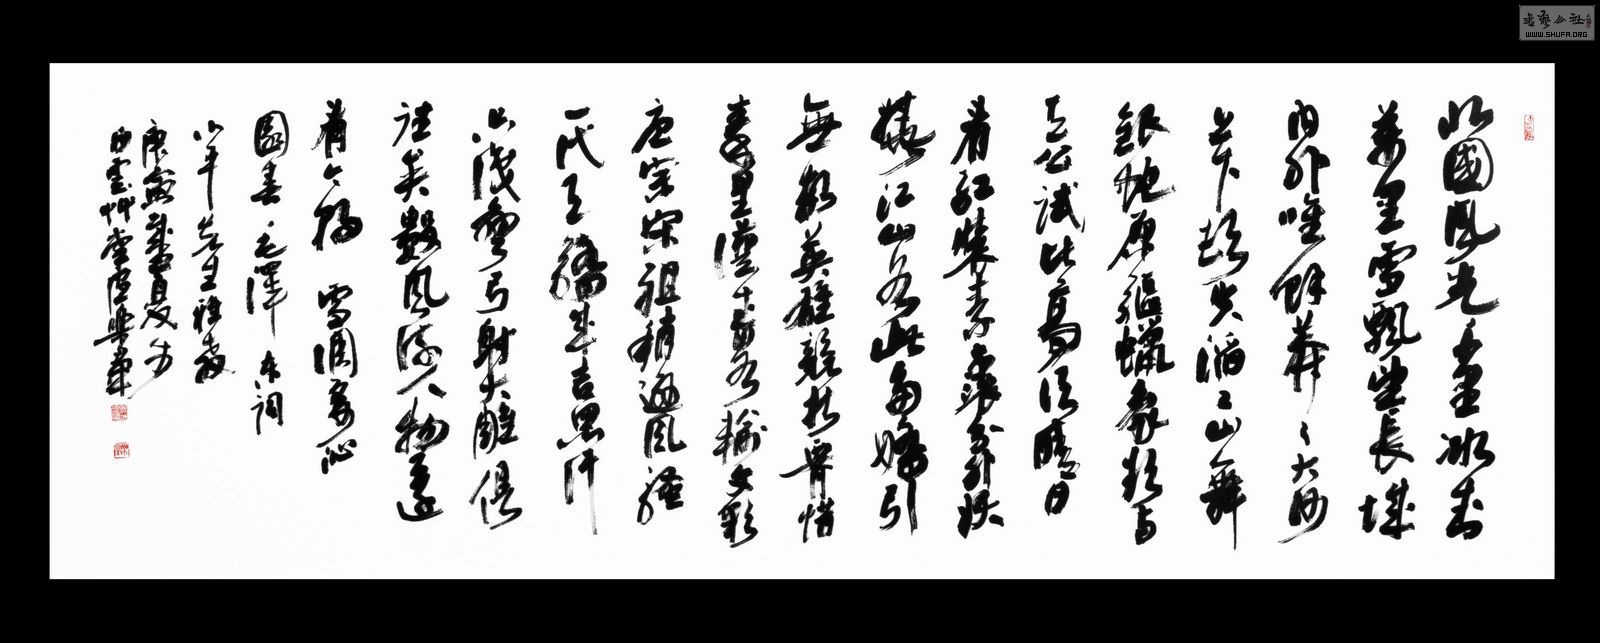 北國風光千里冰封
萬里雪飄望長城
內外唯餘莽々大河
上下頓失滔々山舞
銀蛇原馳蠟象欲与
天公試比高須晴日
看紅裝素裹分外妖
嬈江山如此多嬌引
無數英雄競折腰惜
秦皇漢武略輸文彩
唐宗宋祖稍遜風騷
一代天驕成吉思汗
只識彎弓射大雕俱
往矣數風流人物還
看今朝 雪調寄沁
園春 毛澤東詞
平先生雅教
庚寅歲夏
白雲草堂
書藝公社
WWW.SHUFA.ORG